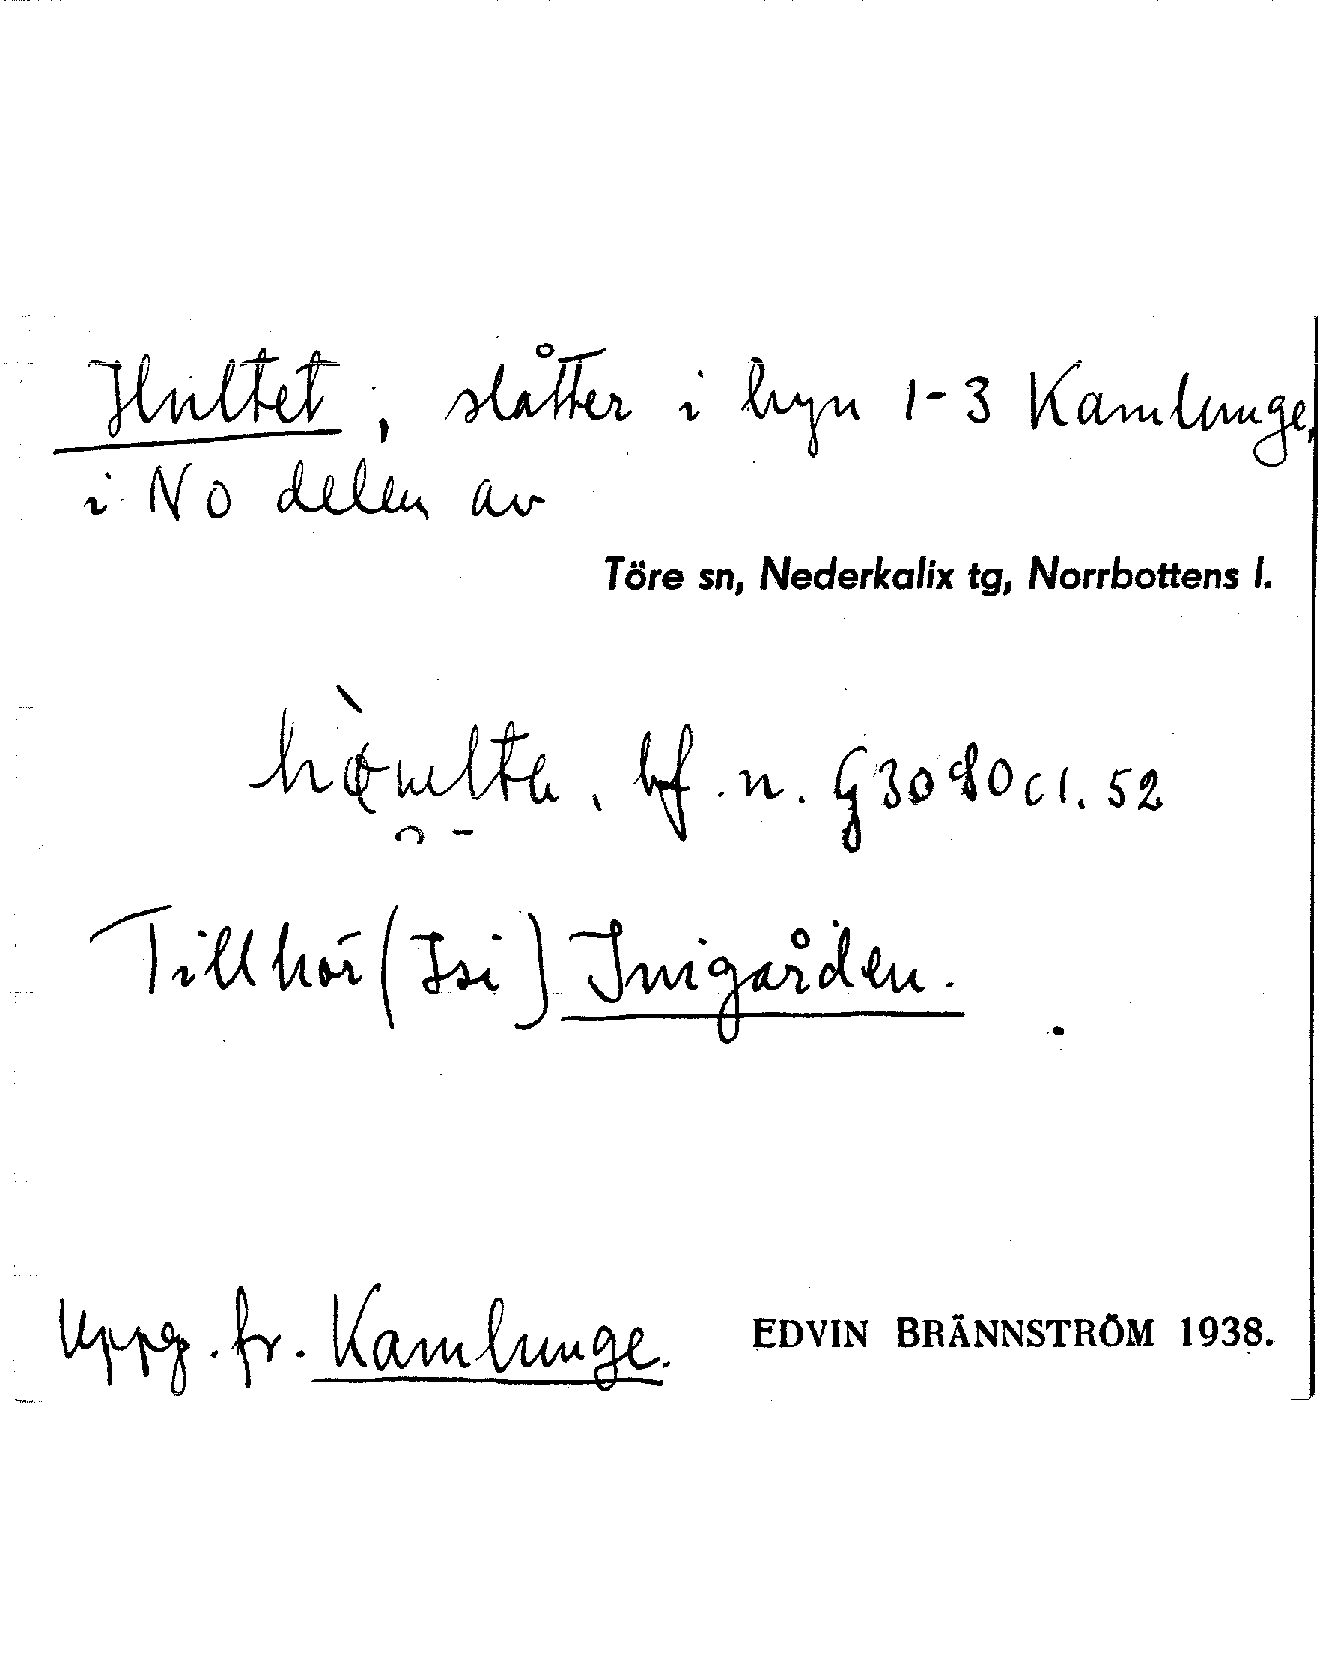 Hultet, slåtter i byn 1-3 Kamlunge,
i NO delen av
Töre sn, Nederkalix tg, Norrbottens l.
bf. n. G3080 c1. 52
Tillhör (Isi) Inigården.
Uppg. fr. Kamlunge.
EDVIN BRÄNNSTRÖM 1938.